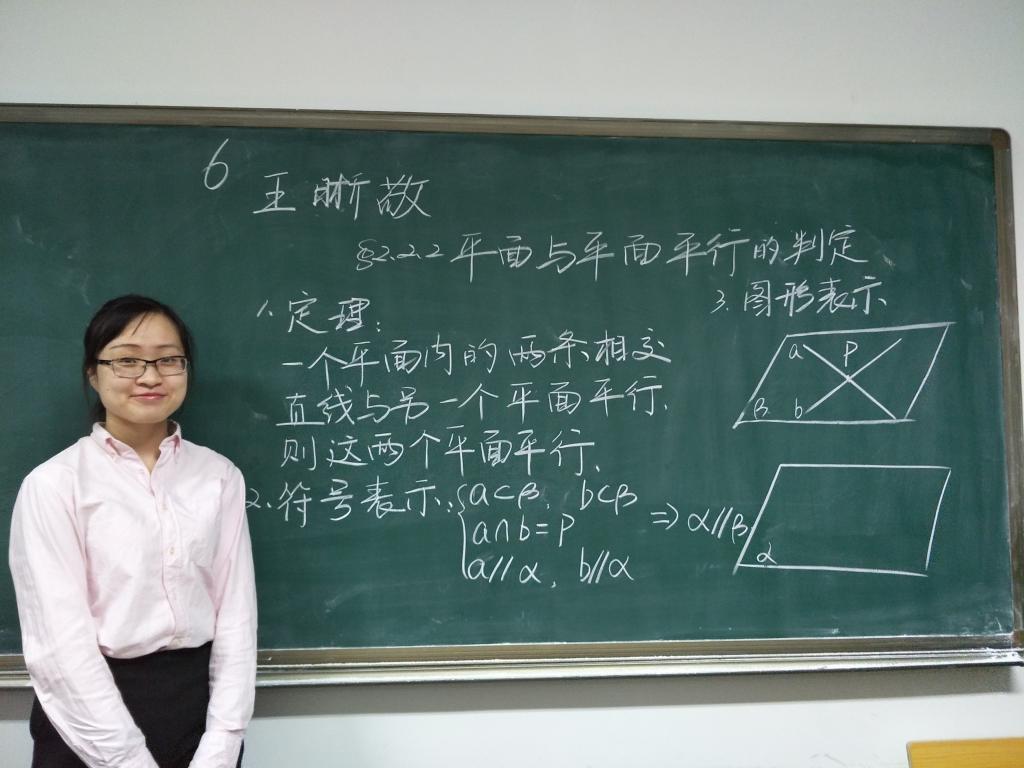 6
王晰敬
§2.2.2 平面与平面平行的判定
1.定理:
一个平面内的两条相交
直线与另一个平面平行,
则这两个平面平行.
2.符号表示: { a⊂β, b⊂β
a∩b=P
a//α, b//α
⇒ α//β
3.图形表示
a P
β b
α